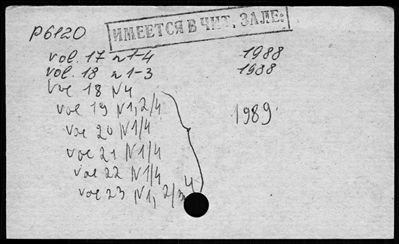 P6120
ИМЕЕТСЯ В ЧИТ. ЗАЛЕ:
vol. 17 n 1-4 1988
vol. 18 n 1-3 1988
voe 18 N4
voe 19 N1, 2/4 1989
voe 20 N1/4
voe 21 N1/4
voe 22 N1/4
voe 23 N1, 2/3 4